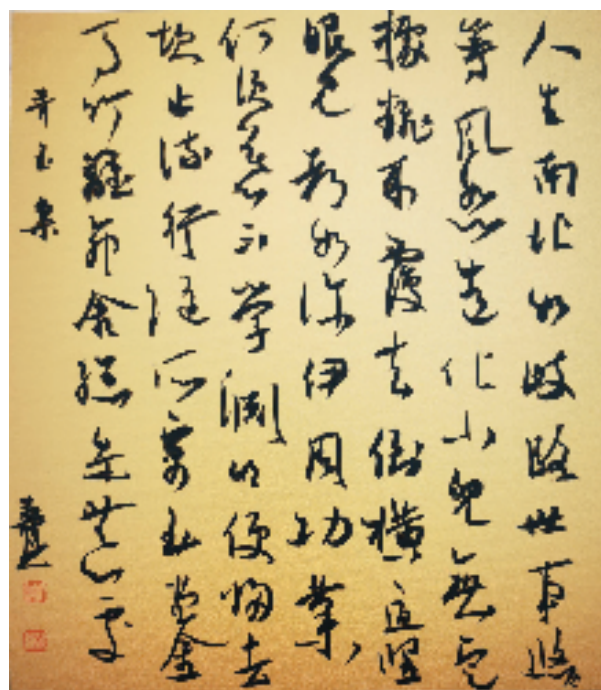 人生南北如歧路世事悠悠
等風絮造化小兒無定
據翻來覆去倒橫直竪
眼見都如許伊周功業
何須慕不學淵明便歸去
坎止流行隨所寓玉堂金
馬竹籬茆舍總是無心處
青玉案